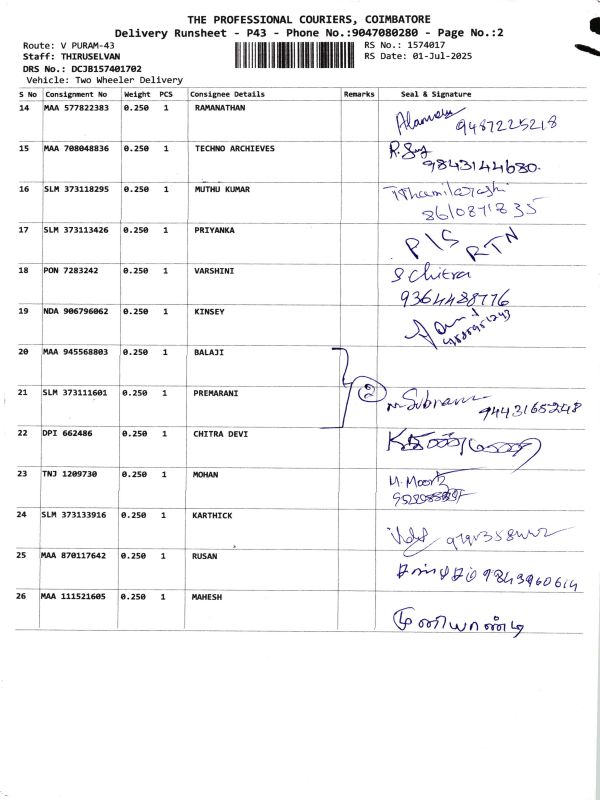 THE PROFESSIONAL COURIERS, COIMBATORE
Delivery Runsheet - P43 - Phone No.:9047080280 - Page No.:2
Route: V PURAM-43 RS No.: 1574017
Staff: THIRUSELVAN RS Date: 01-Jul-2025
DRS No.: DCJB157401702
Vehicle: Two Wheeler Delivery
S No Consignment No Weight PCS Consignee Details Remarks Seal & Signature
14 MAA 577822383 0.250 1 RAMANATHAN
9487225218
15 MAA 708048836 0.250 1 TECHNO ARCHIEVES
9843144680.
16 SLM 373118295 0.250 1 MUTHU KUMAR
8610871835
17 SLM 373113426 0.250 1 PRIYANKA P/S RTN
18 PON 7283242 0.250 1 VARSHINI S Chitra
9364428776
19 NDA 906796062 0.250 1 KINSEY
20 MAA 945568803 0.250 1 BALAJI
2
21 SLM 373111601 0.250 1 PREMARANI 9443165248
22 DPI 662486 0.250 1 CHITRA DEVI
23 TNJ 1209730 0.250 1 MOHAN
24 SLM 373133916 0.250 1 KARTHICK
25 MAA 870117642 0.250 1 RUSAN 9843960614
26 MAA 111521605 0.250 1 MAHESH
முனியாண்டி